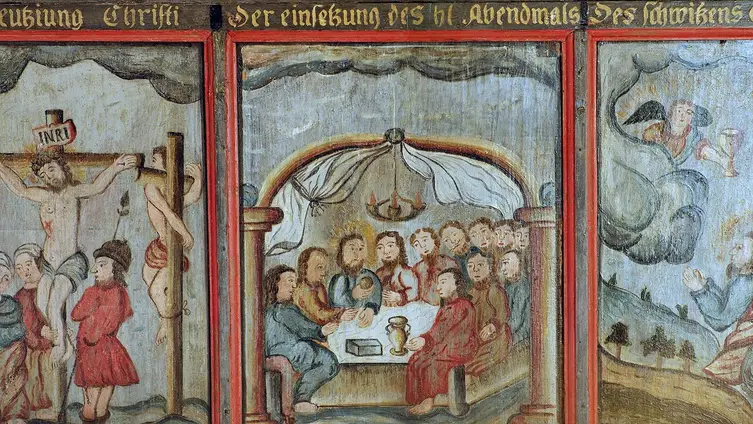 eutziung Christi
Der einsetzung des hl Abendmals
Des schwitzens
INRI